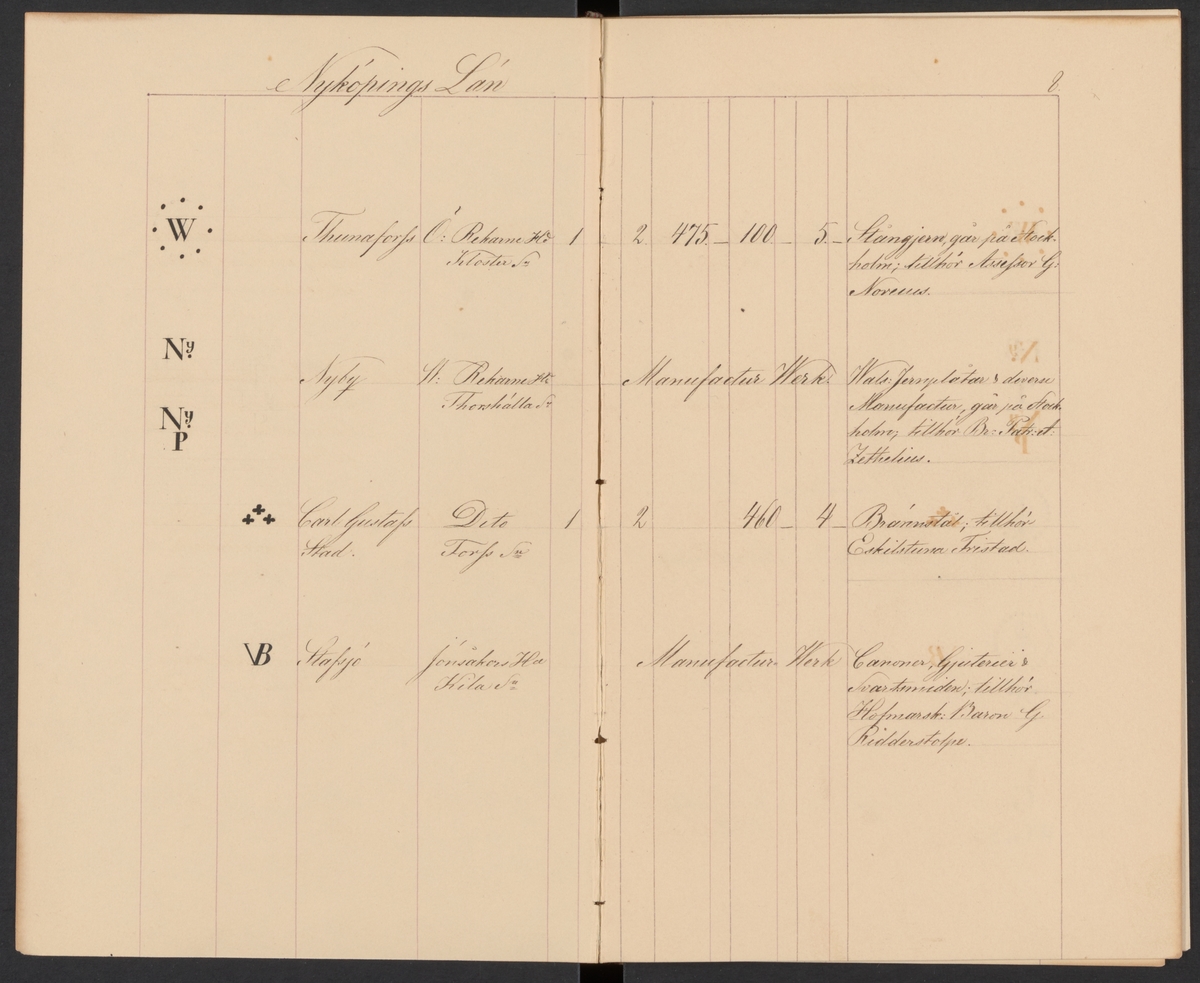 Nyköpings Län
8.
W Thunaforss Ö: Rekarne Hd 1 2 475 100 5 Stångjern, går på Stock-
Kloster Sn holm; tillhör Assessor G:
Noreus.
Ny
Nyby W: Rekarne Hd Manufactur Werk. Wals: Jernplåtar & diverse
Thorshälla Sn Manufactur, går på Stock-
Ny holm; tillhör Br: Patr: A:
P Zethelius.
Carl Gustafs Dito 1 2 460 4 Brännstål; tillhör
Stad. Forss Sn Eskilstuna Fristad.
VB Stafsjö Jönåkers Hd Manufactur Werk Canoner, Gjuterier &
Kila Sn Svartsmiden; tillhör
Hofmarsk: Baron G.
Ridderstolpe.